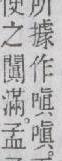 所據作嗔嗔。
使之闐滿。孟子